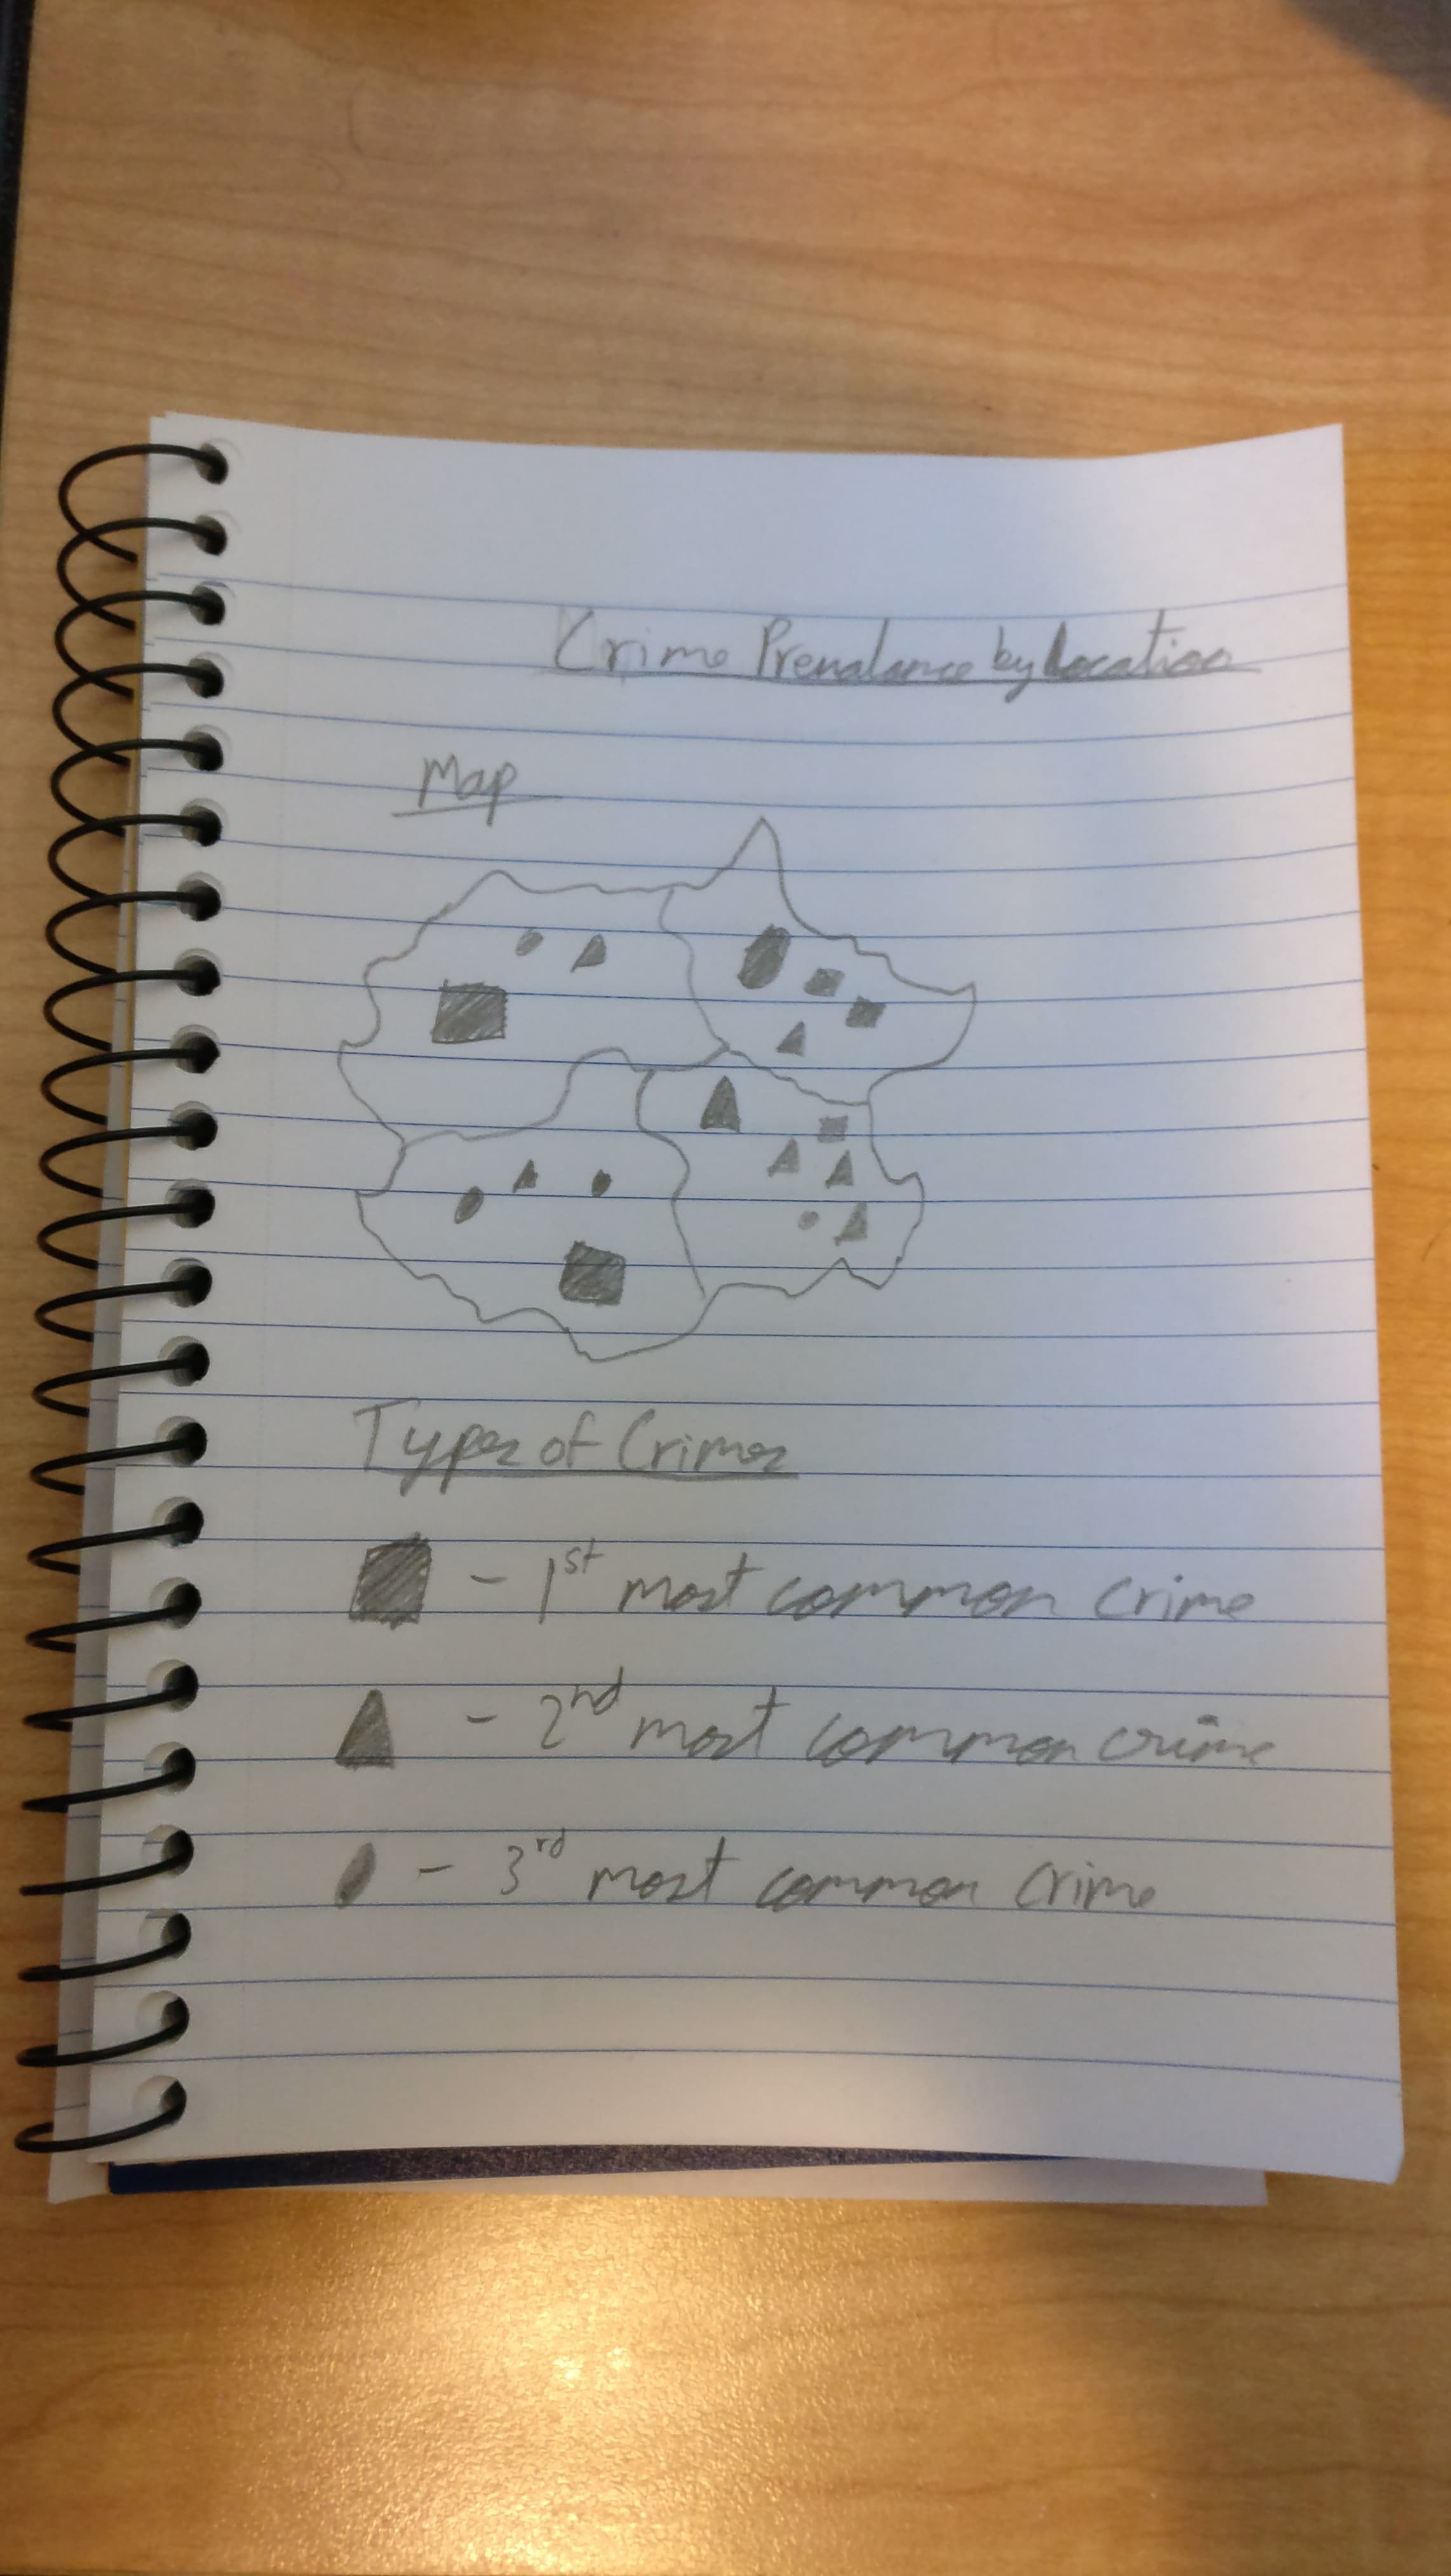 Crime Prenalance by Location
Map
Types of Crimes
- 1st most common crime
- 2nd most common crime
- 3rd most common crime